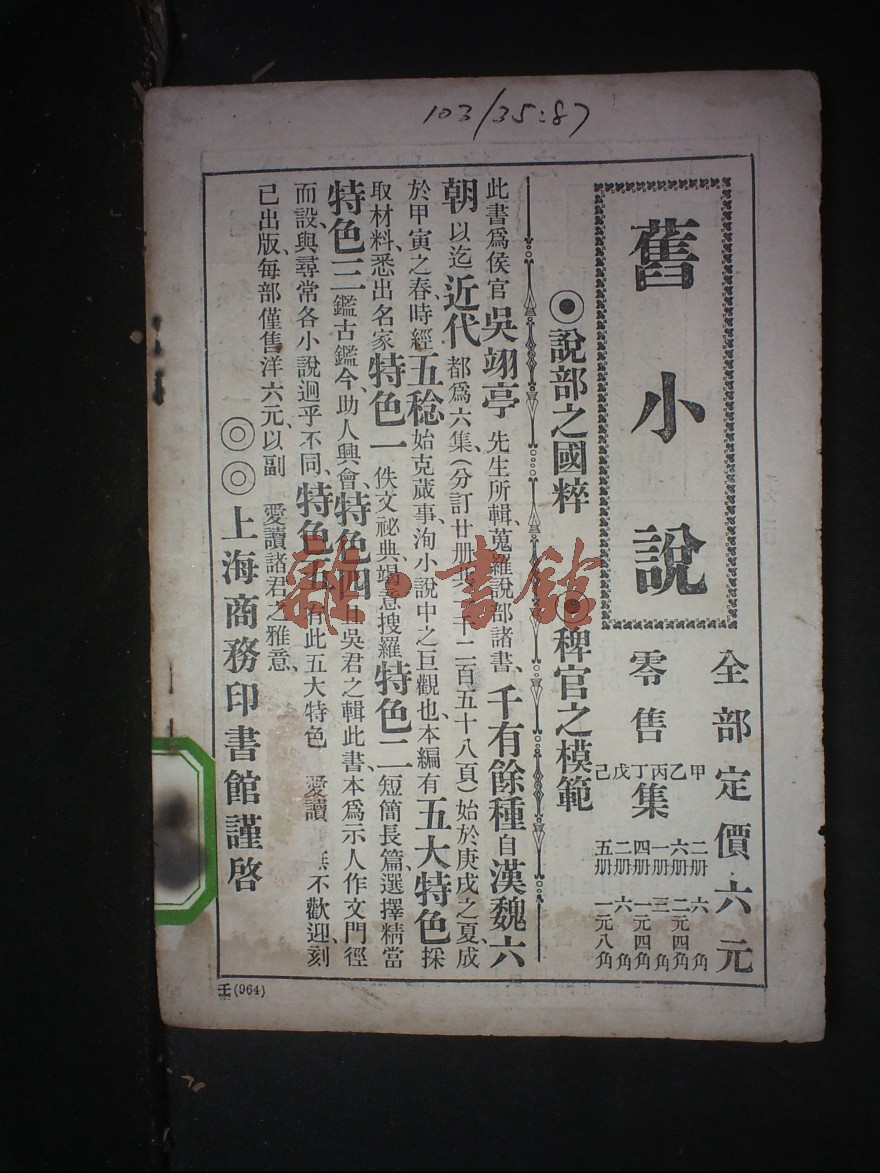 103/35:87
舊小說
全部定價六元
零售
甲 乙 丙 丁 戊 己
集
二册 六角
六册 二元四角
一册 三角
四册 一元四角
二册 六角
五册 一元八角
◉說部之國粹 ◉稗官之模範
此書爲侯官吳翊亭先生所輯、蒐羅說部諸書、千有餘種自漢魏六
朝以迄近代都爲六集、(分訂廿册共二千二百五十八頁)始於庚戌之夏、成
於甲寅之春、時經五稔始克蕆事、洵小說中之巨觀也、本編有五大特色採
取材料、悉出名家特色一佚文祕典、竭意搜羅特色二短簡長篇、選擇精當
特色三鑑古鑑今、助人興會、特色四吳君之輯此書、本爲示人作文門徑
而設、與尋常各小說迥乎不同、特色五有此五大特色 愛讀 無不歡迎、刻
已出版、每部僅售洋六元、以副 愛讀諸君之雅意、
◎◎上海商務印書館謹啓
壬(964)
雜·書館